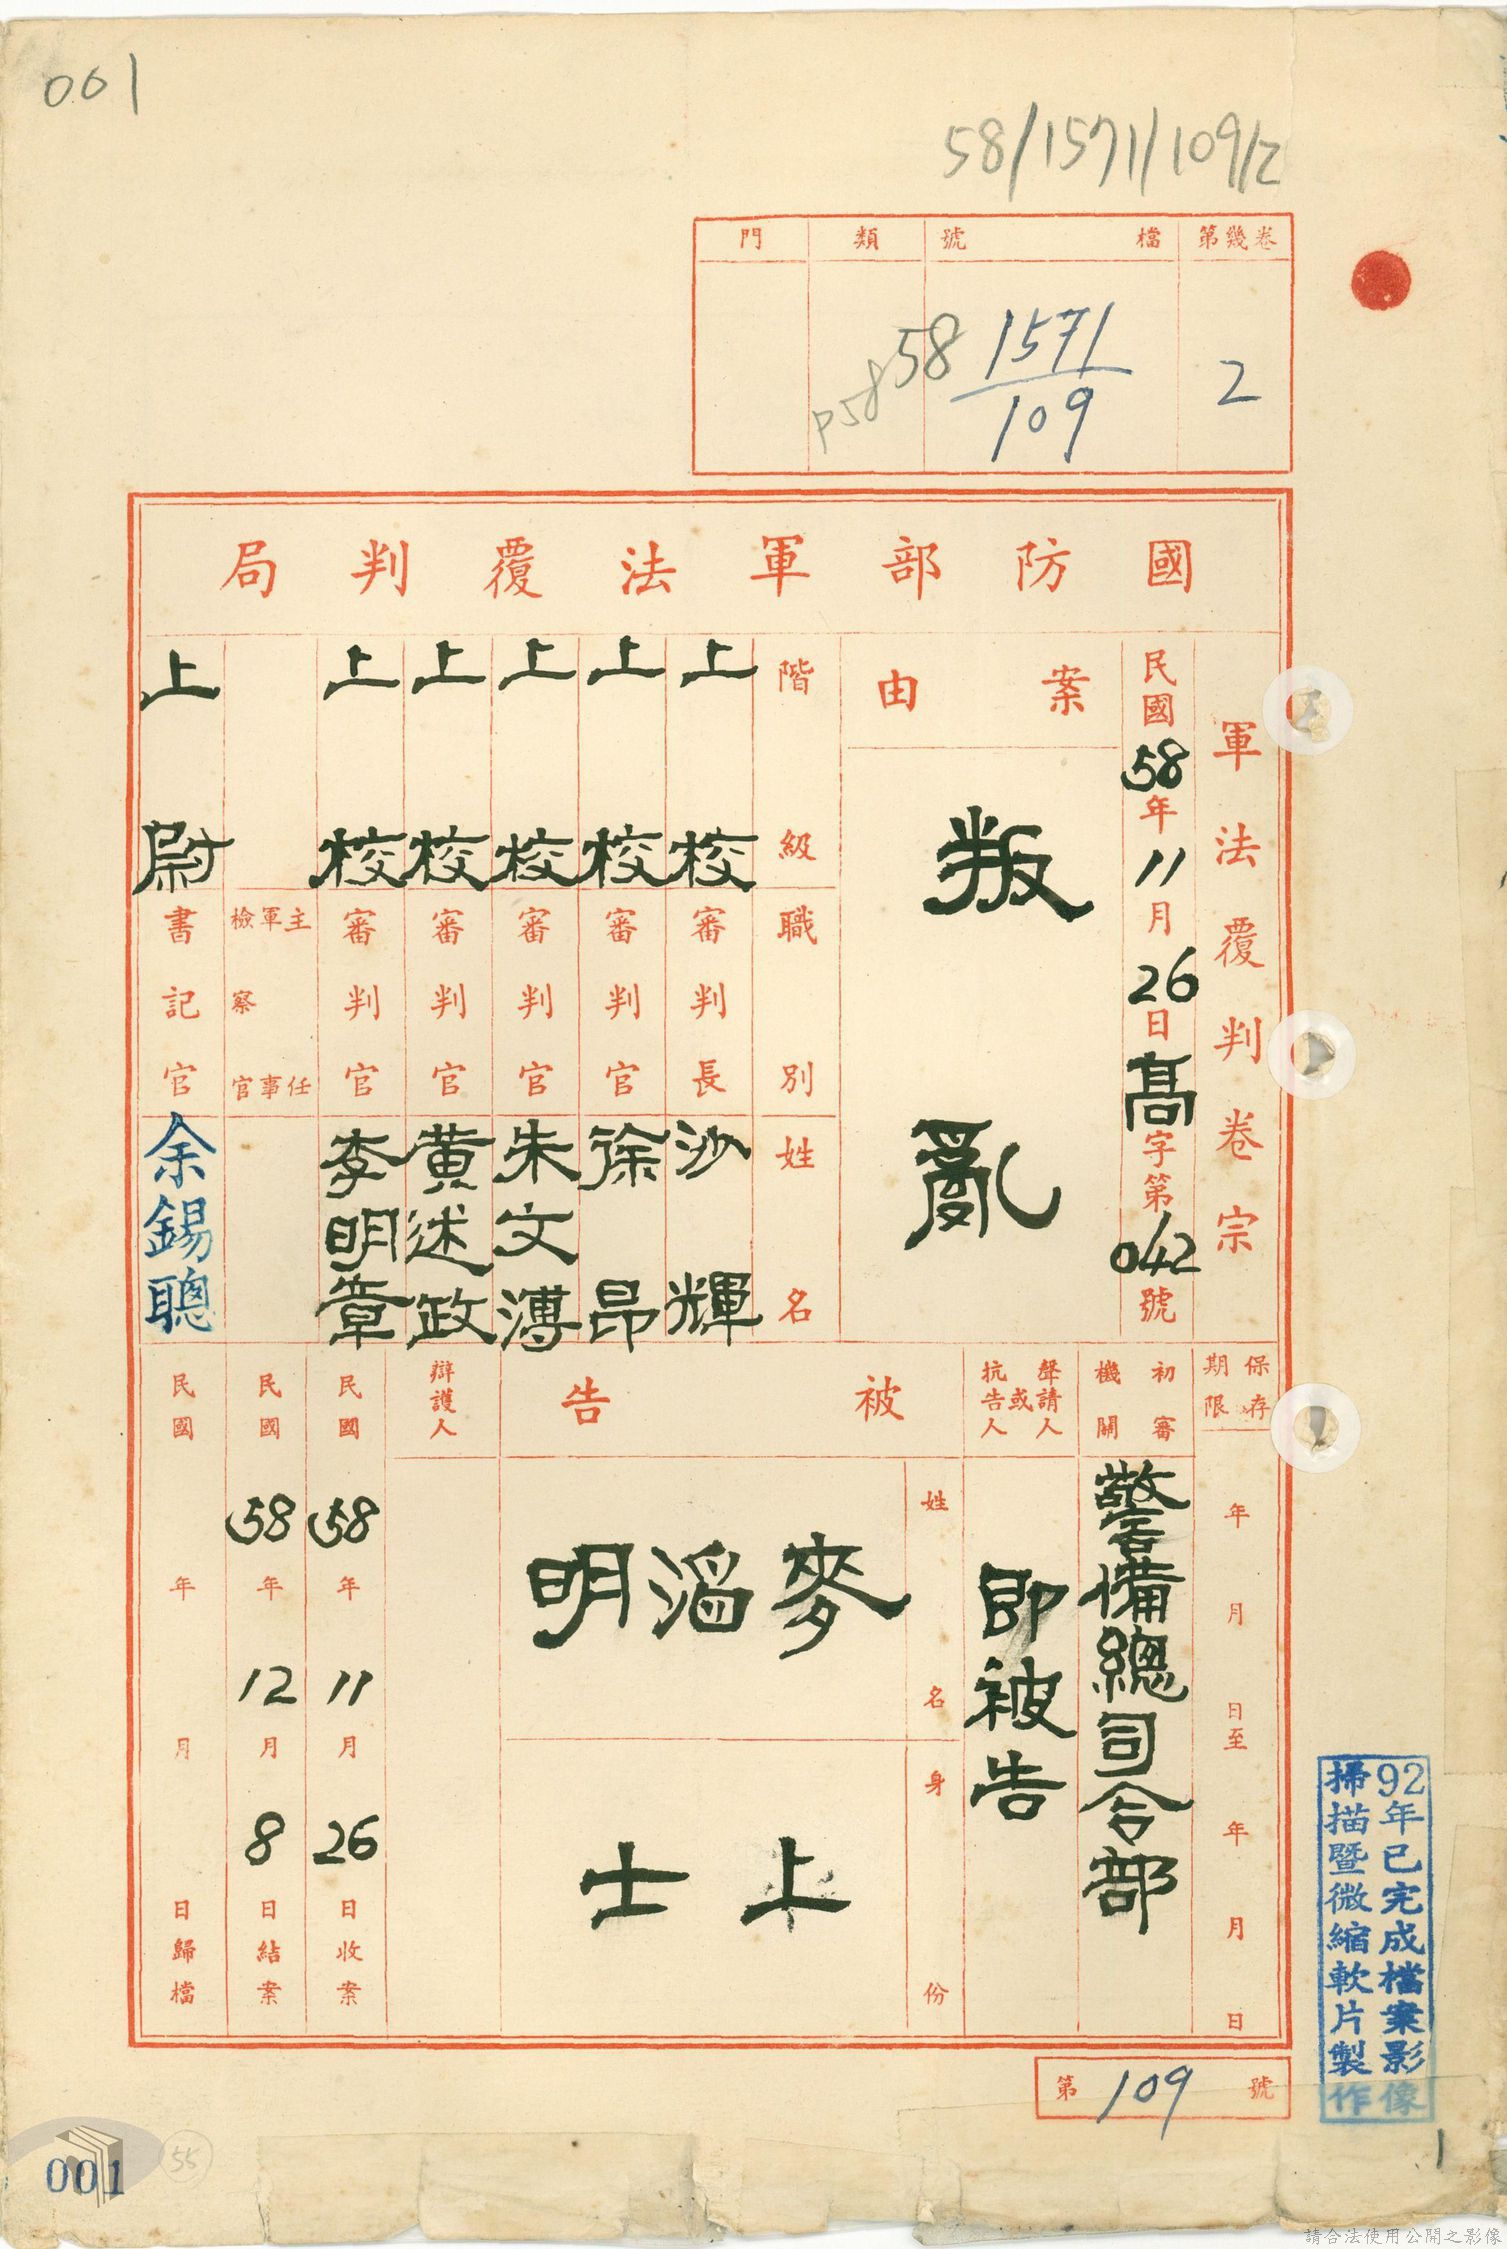 001
58/1571/109/2
卷幾第
檔號
類
門
2
58 1571
109
P58
國防部軍法覆判局
軍法覆判卷宗
民國58年11月26日高字第042號
案由
叛亂
階級
職別
姓名
上校
審判長
沙輝
上校
審判官
徐昂
上校
審判官
朱文溥
上校
審判官
黃述政
上校
審判官
李明章
主任軍事檢察官
上尉
書記官
余錫聰
保存期限
年月日至年月日
初審機關
警備總司令部
聲請人或抗告人
即被告
被告
姓名
麥滔明
身份
上士
辯護人
民國58年11月26日收案
民國58年12月8日結案
民國年月日歸檔
第109號
92年已完成檔案影像
掃描暨微縮軟片製作
001
55
1
請合法使用公開之影像